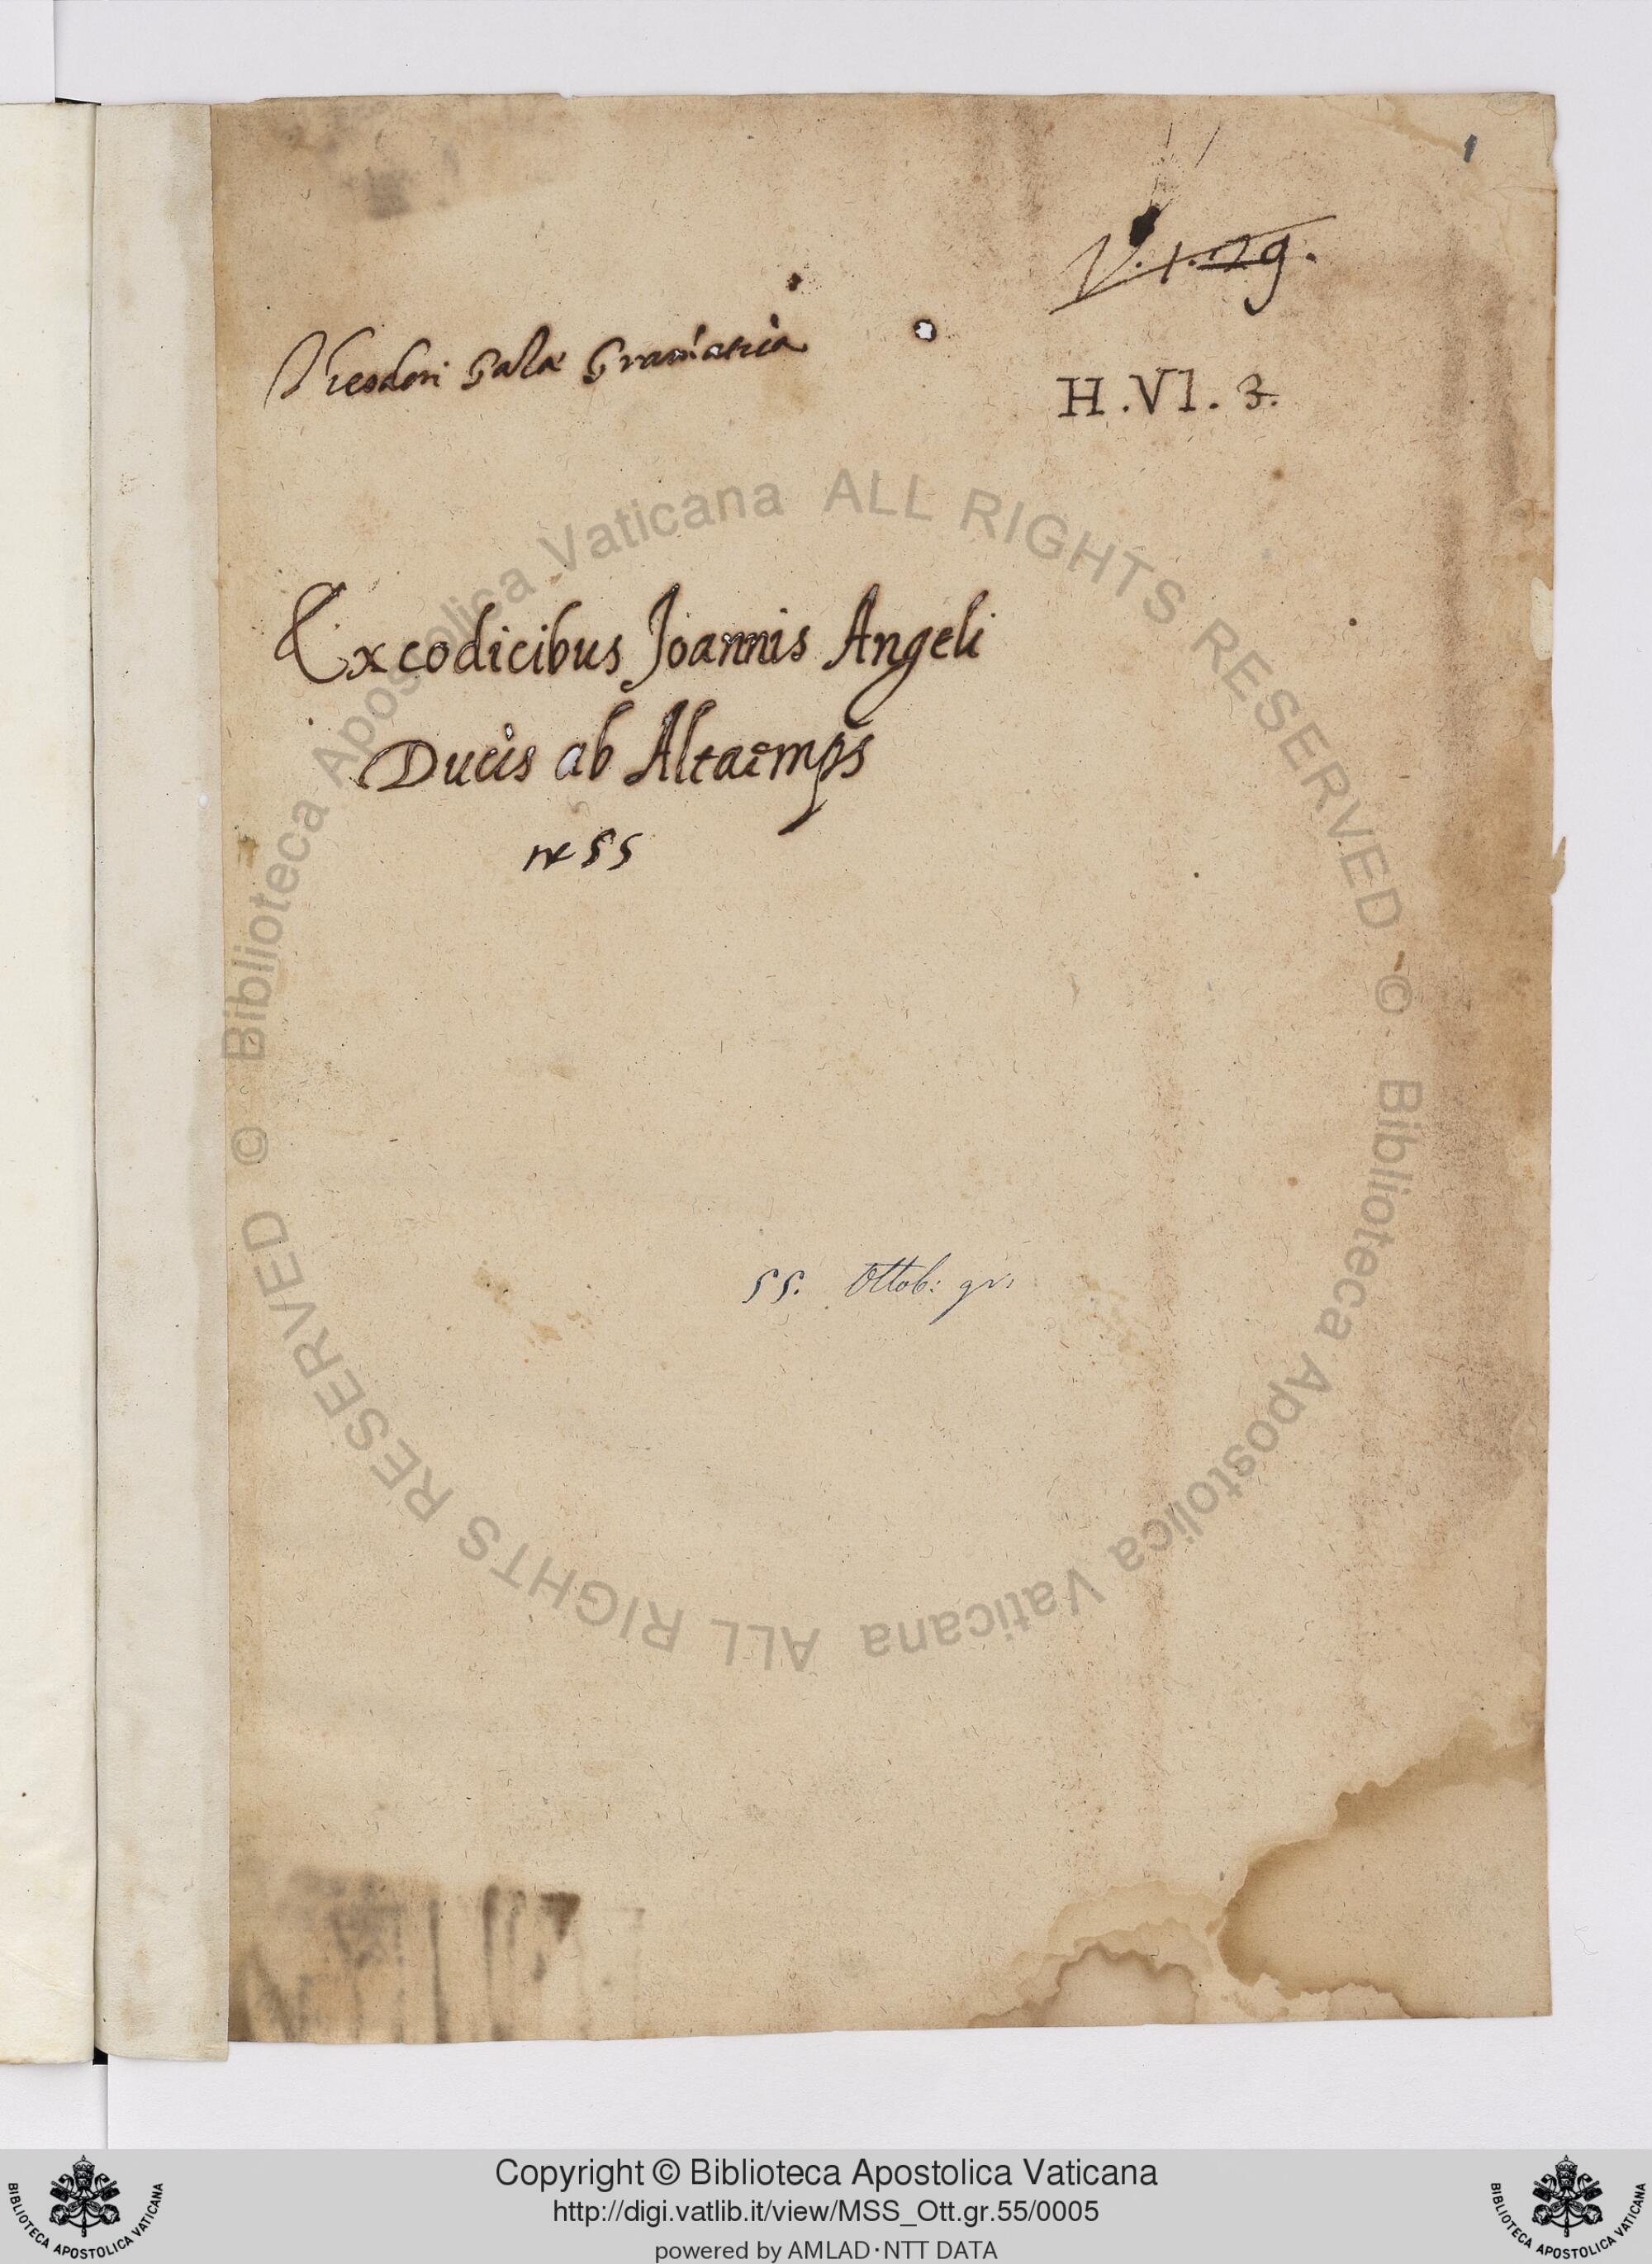 1
V. 1. 29.
Theodori Gazæ Gram̃atica
H. VI. 3.
Ex codicibus Joannis Angeli
Ducis ab Altaemps
55
55. Ottob: gr:
© Biblioteca Apostolica Vaticana ALL RIGHTS RESERVED
© Biblioteca Apostolica Vaticana ALL RIGHTS RESERVED
BIBLIOTECA APOSTOLICA VATICANA
Copyright © Biblioteca Apostolica Vaticana
http://digi.vatlib.it/view/MSS_Ott.gr.55/0005
powered by AMLAD·NTT DATA
BIBLIOTECA APOSTOLICA VATICANA